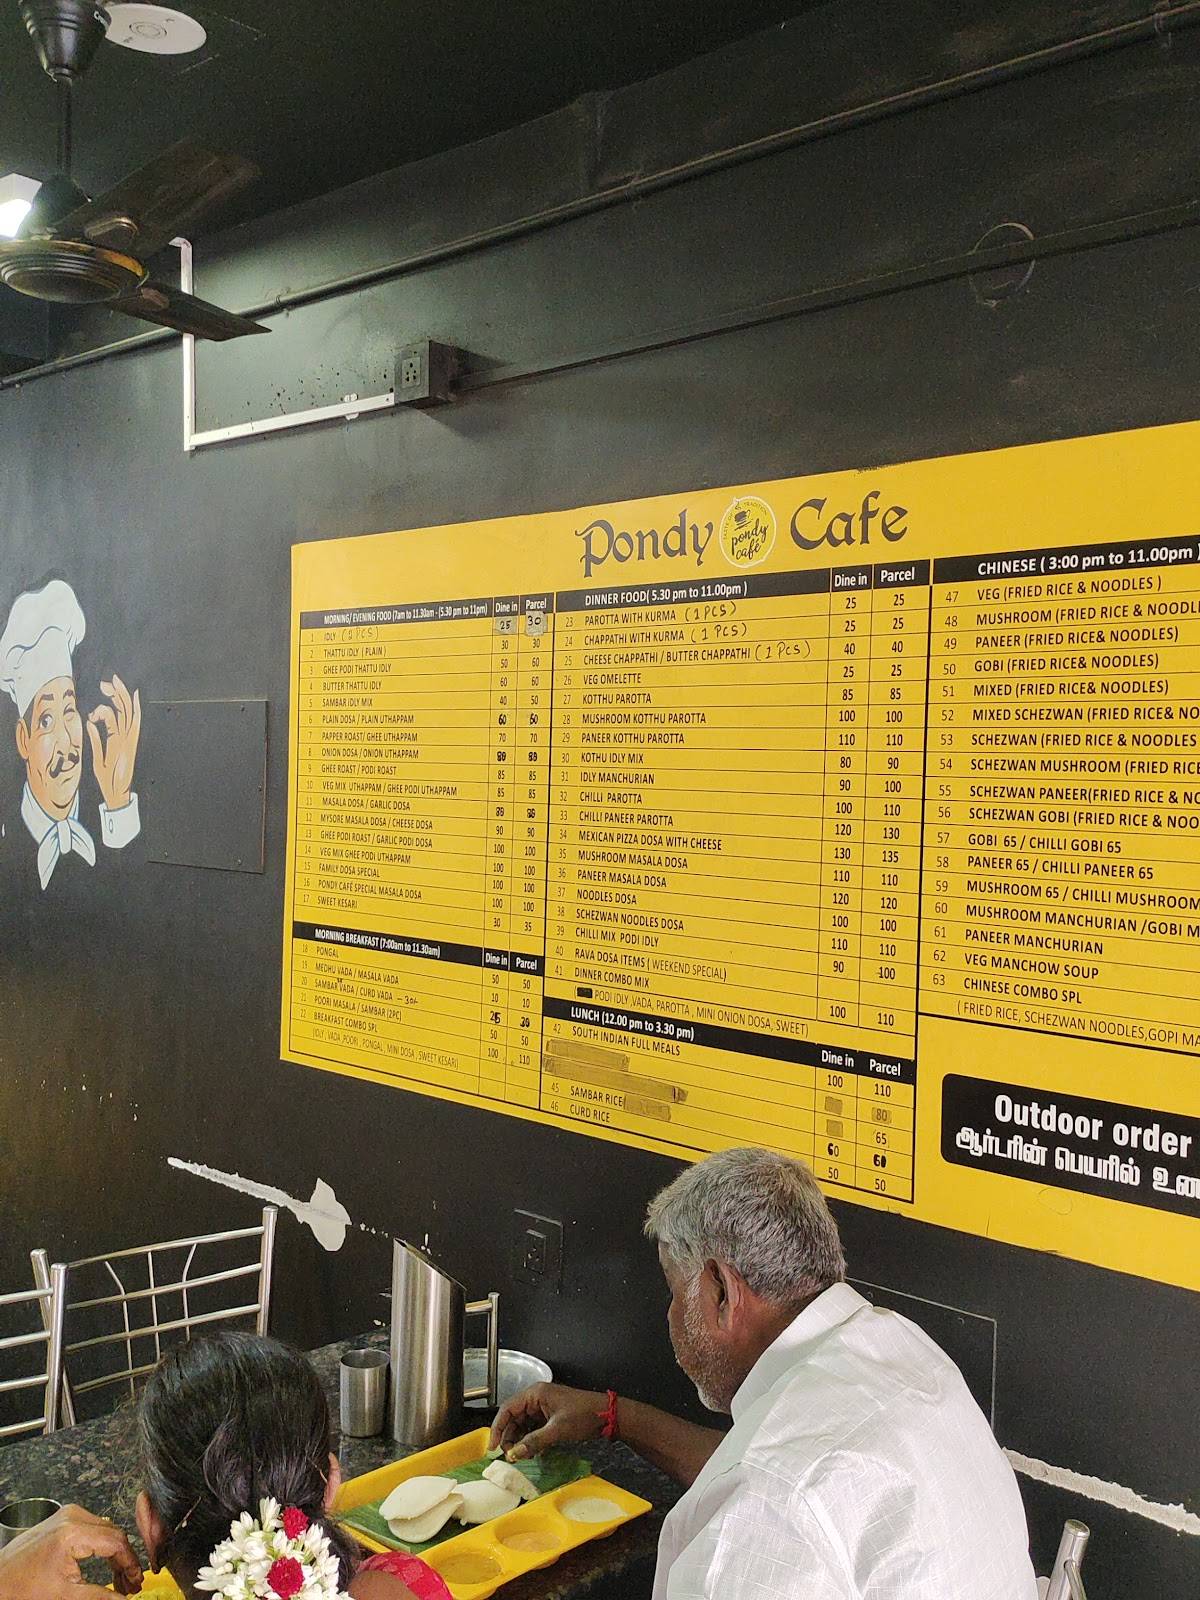 Pondy Cafe
TASTE OF TRADITION
pondy
café
MORNING/ EVENING FOOD (7am to 11.30am - (5.30 pm to 11pm) Dine in Parcel
1 IDLY 25 30
2 THATTU IDLY ( PLAIN ) 30 30
3 GHEE PODI THATTU IDLY 50 60
4 BUTTER THATTU IDLY 60 60
5 SAMBAR IDLY MIX 40 50
6 PLAIN DOSA / PLAIN UTHAPPAM 60 60
7 PAPPER ROAST/ GHEE UTHAPPAM 70 70
8 ONION DOSA / ONION UTHAPPAM 80 80
9 GHEE ROAST / PODI ROAST 85 85
10 VEG MIX UTHAPPAM / GHEE PODI UTHAPPAM 85 85
11 MASALA DOSA / GARLIC DOSA
12 MYSORE MASALA DOSA / CHEESE DOSA 90 90
13 GHEE PODI ROAST / GARLIC PODI DOSA 100 100
14 VEG MIX GHEE PODI UTHAPPAM 100 100
15 FAMILY DOSA SPECIAL 100 100
16 PONDY CAFÉ SPECIAL MASALA DOSA 100 100
17 SWEET KESARI 30 35
MORNING BREAKFAST (7:00am to 11.30am) Dine in Parcel
18 PONGAL 50 50
19 MEDHU VADA / MASALA VADA 10 10
20 SAMBAR VADA / CURD VADA - 30/- 25 30
21 POORI MASALA / SAMBAR (2PC) 50 50
22 BREAKFAST COMBO SPL 100 110
(IDLY , VADA ,POORI , PONGAL , MINI DOSA , SWEET KESARI)
DINNER FOOD( 5.30 pm to 11.00pm ) Dine in Parcel
23 PAROTTA WITH KURMA (1 PCS) 25 25
24 CHAPPATHI WITH KURMA (1 PCS) 25 25
25 CHEESE CHAPPATHI / BUTTER CHAPPATHI (1 PCS) 40 40
26 VEG OMELETTE 25 25
27 KOTTHU PAROTTA 85 85
28 MUSHROOM KOTTHU PAROTTA 100 100
29 PANEER KOTTHU PAROTTA 110 110
30 KOTHU IDLY MIX 80 90
31 IDLY MANCHURIAN 90 100
32 CHILLI PAROTTA 100 110
33 CHILLI PANEER PAROTTA 120 130
34 MEXICAN PIZZA DOSA WITH CHEESE 130 135
35 MUSHROOM MASALA DOSA 110 110
36 PANEER MASALA DOSA 120 120
37 NOODLES DOSA 100 100
38 SCHEZWAN NOODLES DOSA 110 110
39 CHILLI MIX PODI IDLY 90 100
40 RAVA DOSA ITEMS ( WEEKEND SPECIAL)
41 DINNER COMBO MIX 100 110
( PODI IDLY ,VADA, PAROTTA , MINI ONION DOSA, SWEET)
LUNCH (12.00 pm to 3.30 pm) Dine in Parcel
42 SOUTH INDIAN FULL MEALS 100 110
80
65
45 SAMBAR RICE 60 60
46 CURD RICE 50 50
CHINESE ( 3:00 pm to 11.00pm )
47 VEG (FRIED RICE & NOODLES )
48 MUSHROOM (FRIED RICE & NOODL
49 PANEER (FRIED RICE& NOODLES)
50 GOBI (FRIED RICE& NOODLES)
51 MIXED (FRIED RICE& NOODLES)
52 MIXED SCHEZWAN (FRIED RICE& NO
53 SCHEZWAN (FRIED RICE & NOODLES
54 SCHEZWAN MUSHROOM (FRIED RICE
55 SCHEZWAN PANEER(FRIED RICE & NO
56 SCHEZWAN GOBI (FRIED RICE & NOO
57 GOBI 65 / CHILLI GOBI 65
58 PANEER 65 / CHILLI PANEER 65
59 MUSHROOM 65 / CHILLI MUSHROOM
60 MUSHROOM MANCHURIAN /GOBI M
61 PANEER MANCHURIAN
62 VEG MANCHOW SOUP
63 CHINESE COMBO SPL
( FRIED RICE, SCHEZWAN NOODLES,GOPI MA
Outdoor order
ஆர்டரின் பெயரில் உண